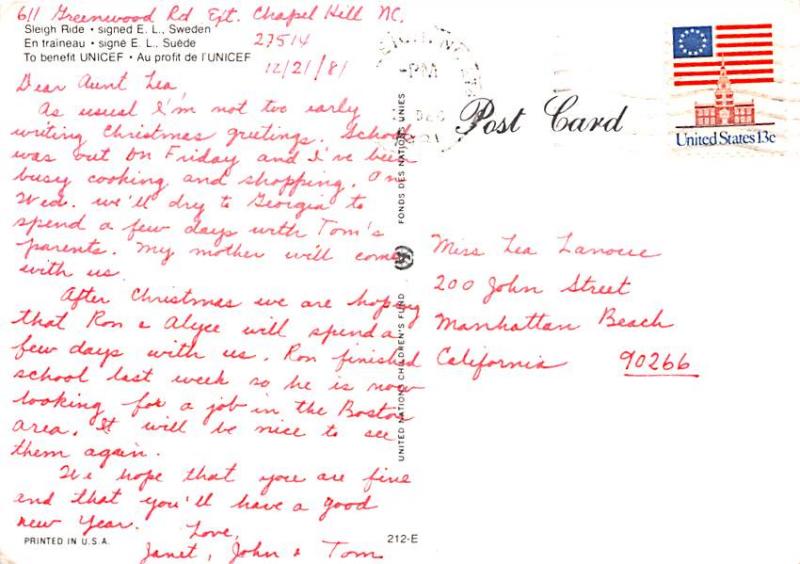 611 Greenwood Rd Ext. Chapel Hill NC.
27514
12/21/81
Sleigh Ride • signed E. L., Sweden
En traineau • signé E. L., Suède
To benefit UNICEF • Au profit de l'UNICEF
Dear Aunt Lea,
As usual I'm not too early
writing Christmas greetings. School
was out on Friday and I've been
busy cooking and shopping. On
Wed. we'll dry to Georgia to
spend a few days with Tom's
parents. My mother will come
with us.
After Christmas we are hoping
that Ron & Alyce will spend a
few days with us. Ron finished
school last week so he is now
looking for a job in the Boston
area. It will be nice to see
them again.
We hope that you are fine
and that you'll have a good
new Year.
Love,
Janet, John & Tom
PRINTED IN U.S.A.
212-E
UNITED NATIONS CHILDREN'S FUND
FONDS DES NATIONS UNIES
Post Card
PM
DEC
United States 13c
Miss Lea Lanoue
200 John Street
Manhattan Beach
California 90266